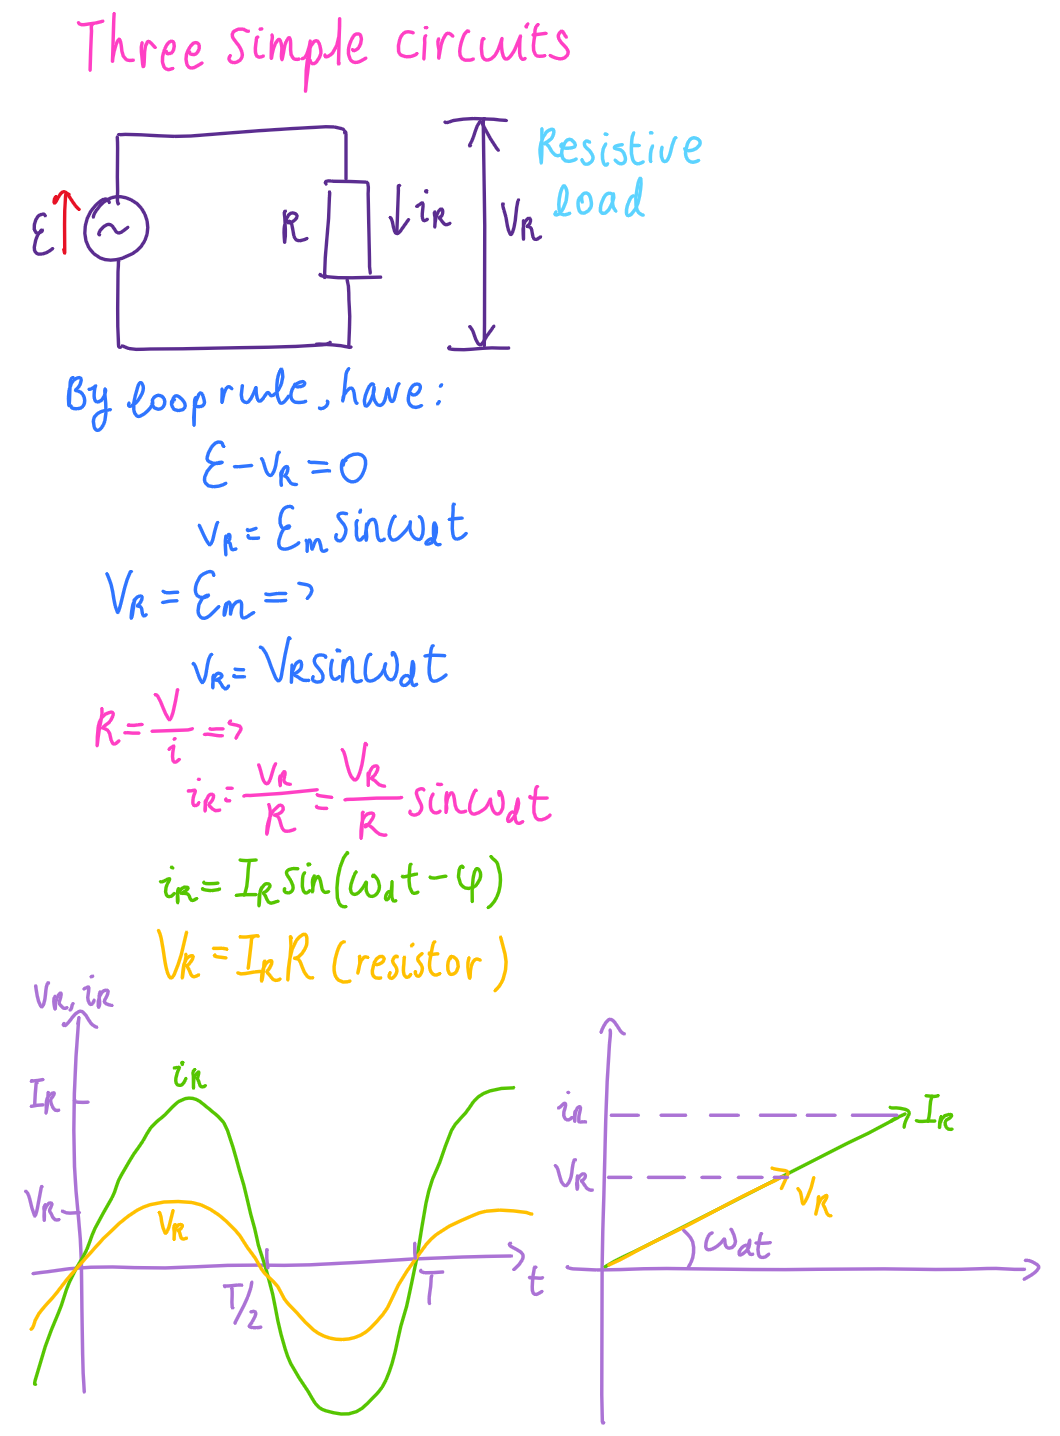 Three simple circuits
Resistive
load
ℰ
R
↓ i_R
V_R
By loop rule, have:
ℰ - v_R = 0
v_R = ℰ_m sin ω_d t
V_R = ℰ_m =>
v_R = V_R sin ω_d t
R = V/i =>
i_R = v_R/R = V_R/R sin ω_d t
i_R = I_R sin(ω_d t - φ)
V_R = I_R R (resistor)
v_R, i_R
I_R
V_R
i_R
v_R
T/2
T
t
i_R
V_R
I_R
V_R
ω_d t